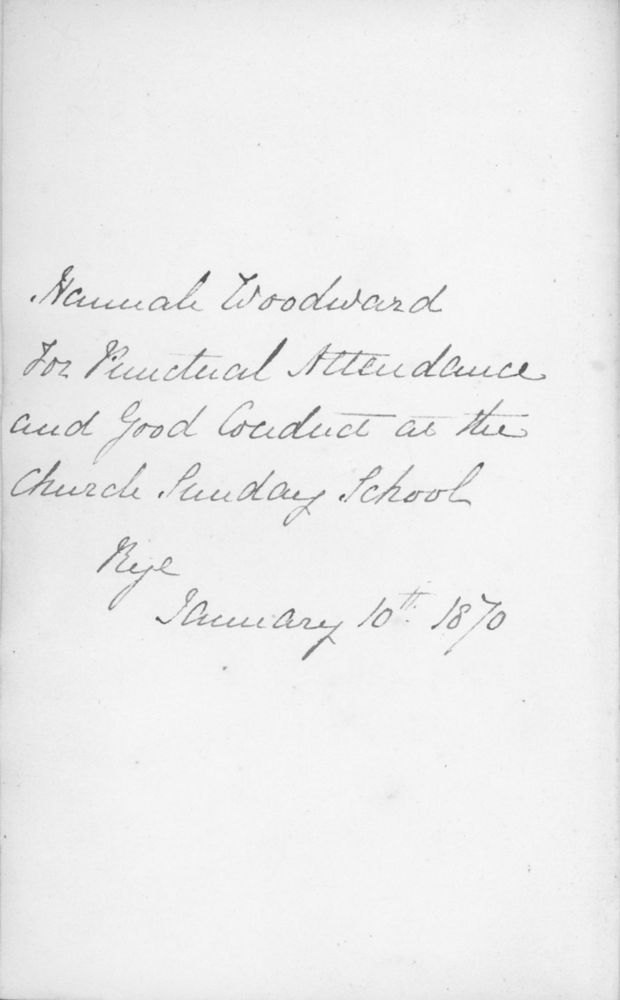 Hannah Woodward
For Punctual Attendance
and Good Conduct at the
Church Sunday School
Rye
January 10th 1870